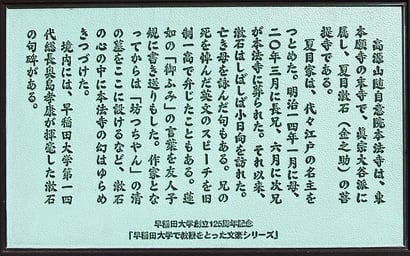 高源山随自意院本法寺は、東
本願寺の末寺で、真宗大谷派に
属し、夏目漱石（金之助）の菩
提寺である。
夏目家は、代々江戸の名主を
つとめた。明治一四年一月に母、
二〇年三月に長兄、六月に次兄
が本法寺に葬られた。それ以来、
漱石はしばしば小日向を訪れた。
亡き母を詠んだ句もある。兄の
死を悼んだ英文のスピーチを旧
制一高で弁じたこともある。蓮
如の「御ふみ」の言葉を友人子
規に書き送りもした。作家とな
ってからは「坊つちやん」の清
の墓をここに設けるなど、漱石
の心の中に本法寺の幻はゆらめ
きつづけた。
境内には、早稲田大学第一四
代総長奥島孝康が揮毫した漱石
の句碑がある。
早稲田大学創立125周年記念
「早稲田大学で教鞭をとった文豪シリーズ」